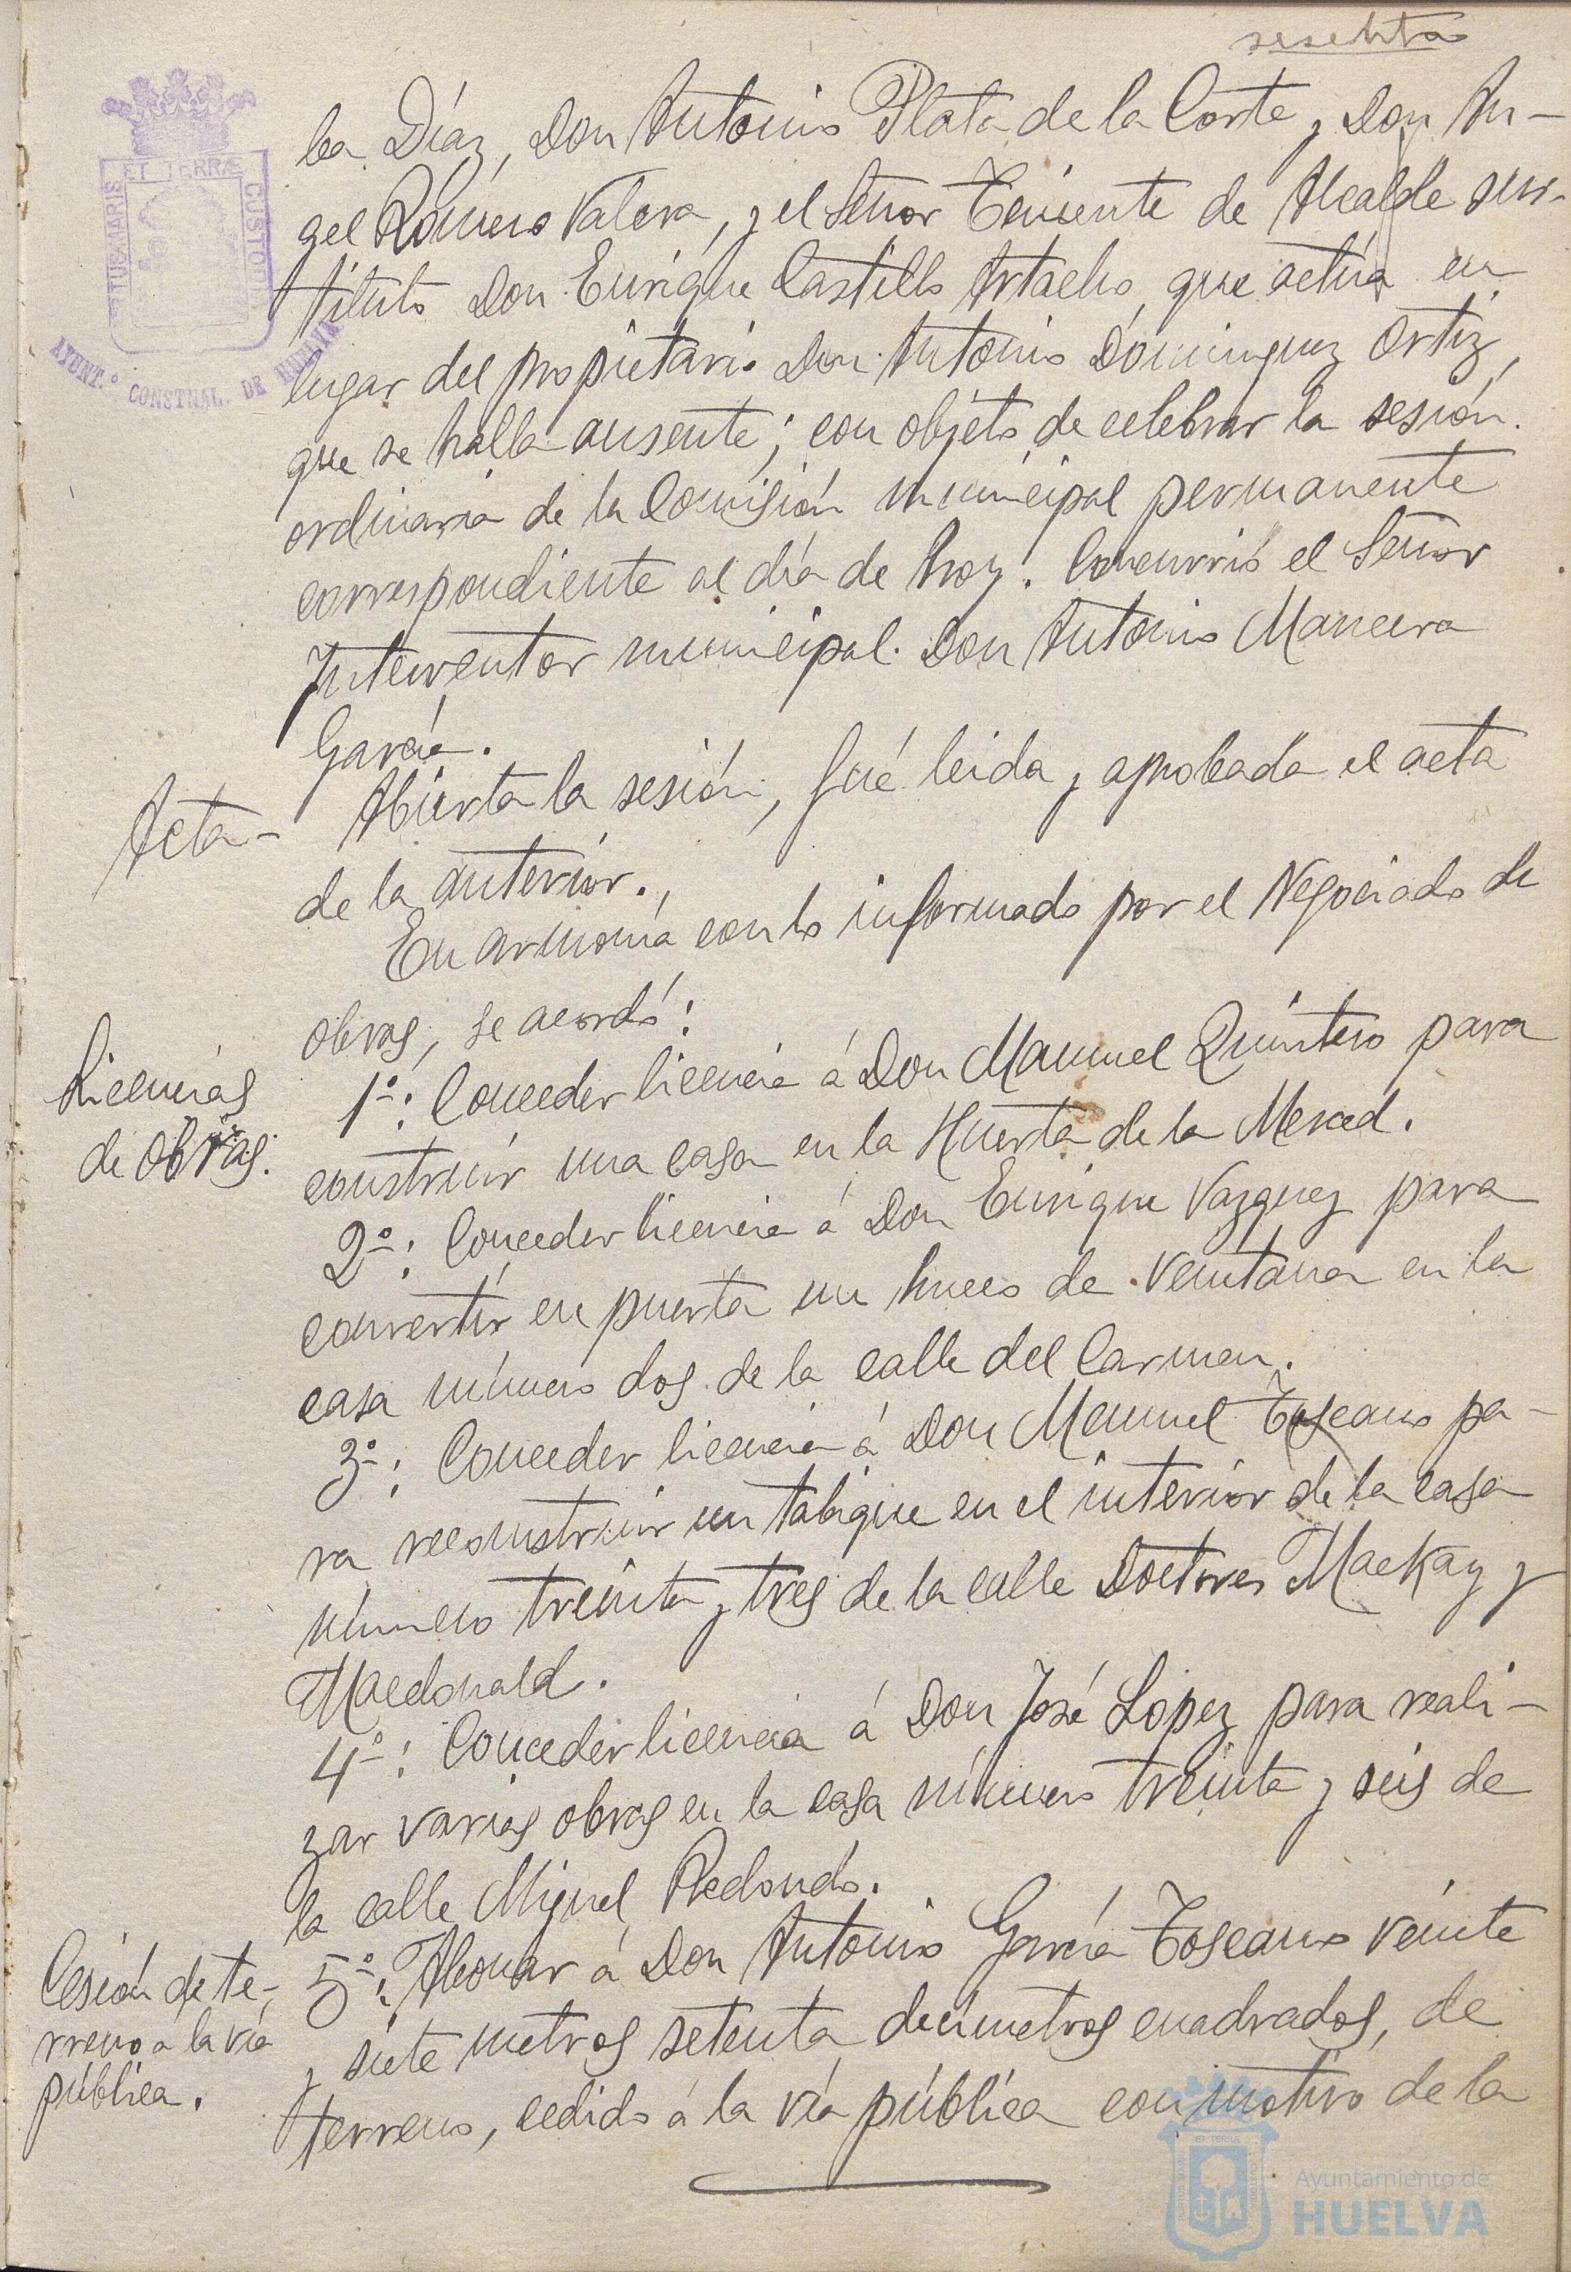 sesenta
ba Díaz, Don Antonio Plata de la Corte, y Don An-
gel Romero Valera, y el Señor Teniente de Alcalde sus-
tituto Don Enrique Castillo Artacho, que actúa en
lugar del propietario Don Antonio Dominguez Ortiz,
que se halla ausente; con objeto de celebrar la sesión
ordinaria de la Comisión municipal permanente
correspondiente al día de hoy. Concurrió el Señor
Interventor municipal Don Antonio Mancera
García.
Acta-
Abierta la sesión, fué leida y aprobada el acta
de la anterior.
En armonía con lo informado por el Negociado de
obras, se acordó:
Licencias
de obras.
1º: Conceder licencia á Don Manuel Quintero para
construir una casa en la Huerta de la Merced.
2º: Conceder licencia á Don Enrique Vazquez para
convertir en puerta un hueco de ventana en la
casa número dos de la calle del Carmen.
3º: Conceder licencia á Don Manuel Toscano pa-
ra reconstruir un tabique en el interior de la casa
número treinta y tres de la calle Doctores Mackay y
Macdonald.
4º: Conceder licencia á Don José Lopez para reali-
zar varias obras en la casa número treinta y seis de
la calle Miguel Redondo.
Cesión de te-
rreno á la vía
pública.
5º: Abonar á Don Antonio García Toscano veinte
y siete metros setenta decímetros cuadrados, de
terreno, cedido á la vía pública con motivo de la
ET TERRÆ
PORTUS MARIS
CUSTODIA
AYUNT.º CONSTNAL. DE HUELVA
Ayuntamiento de
HUELVA